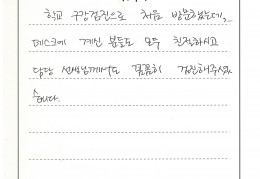 학교 구강검진으로 처음 방문했는데,
데스크에 계신 분들도 모두 친절하시고
담당 선생님께서도 꼼꼼히 검진해주셨
습니다.